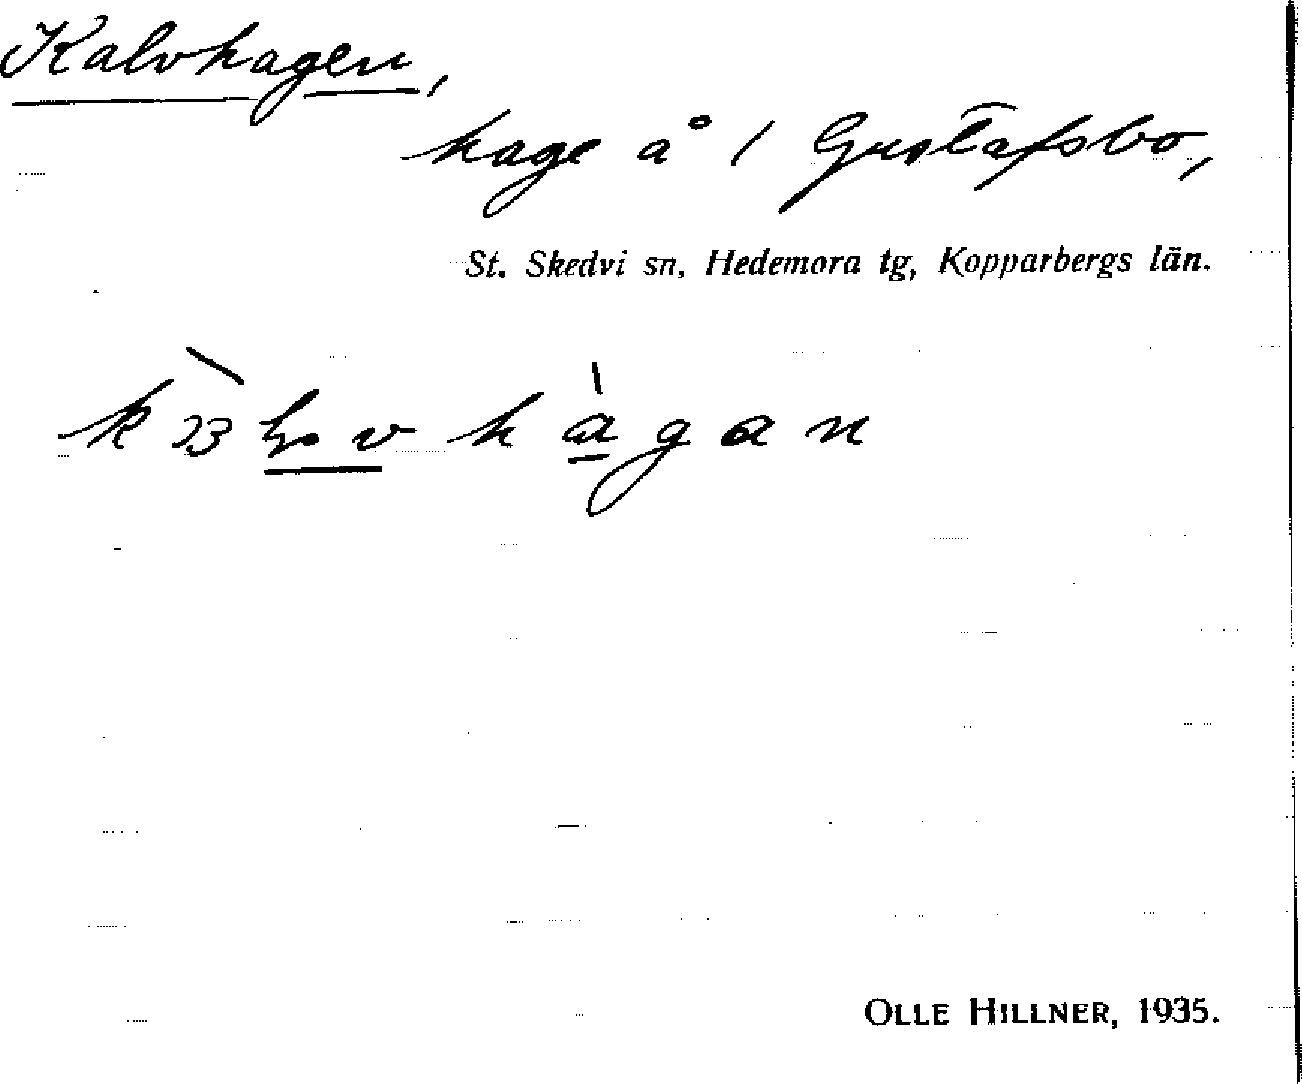 Kalvhagen,
hage å / Gustafsbo,
St. Skedvi sn, Hedemora tg, Kopparbergs län.
OLLE HILLNER, 1935.